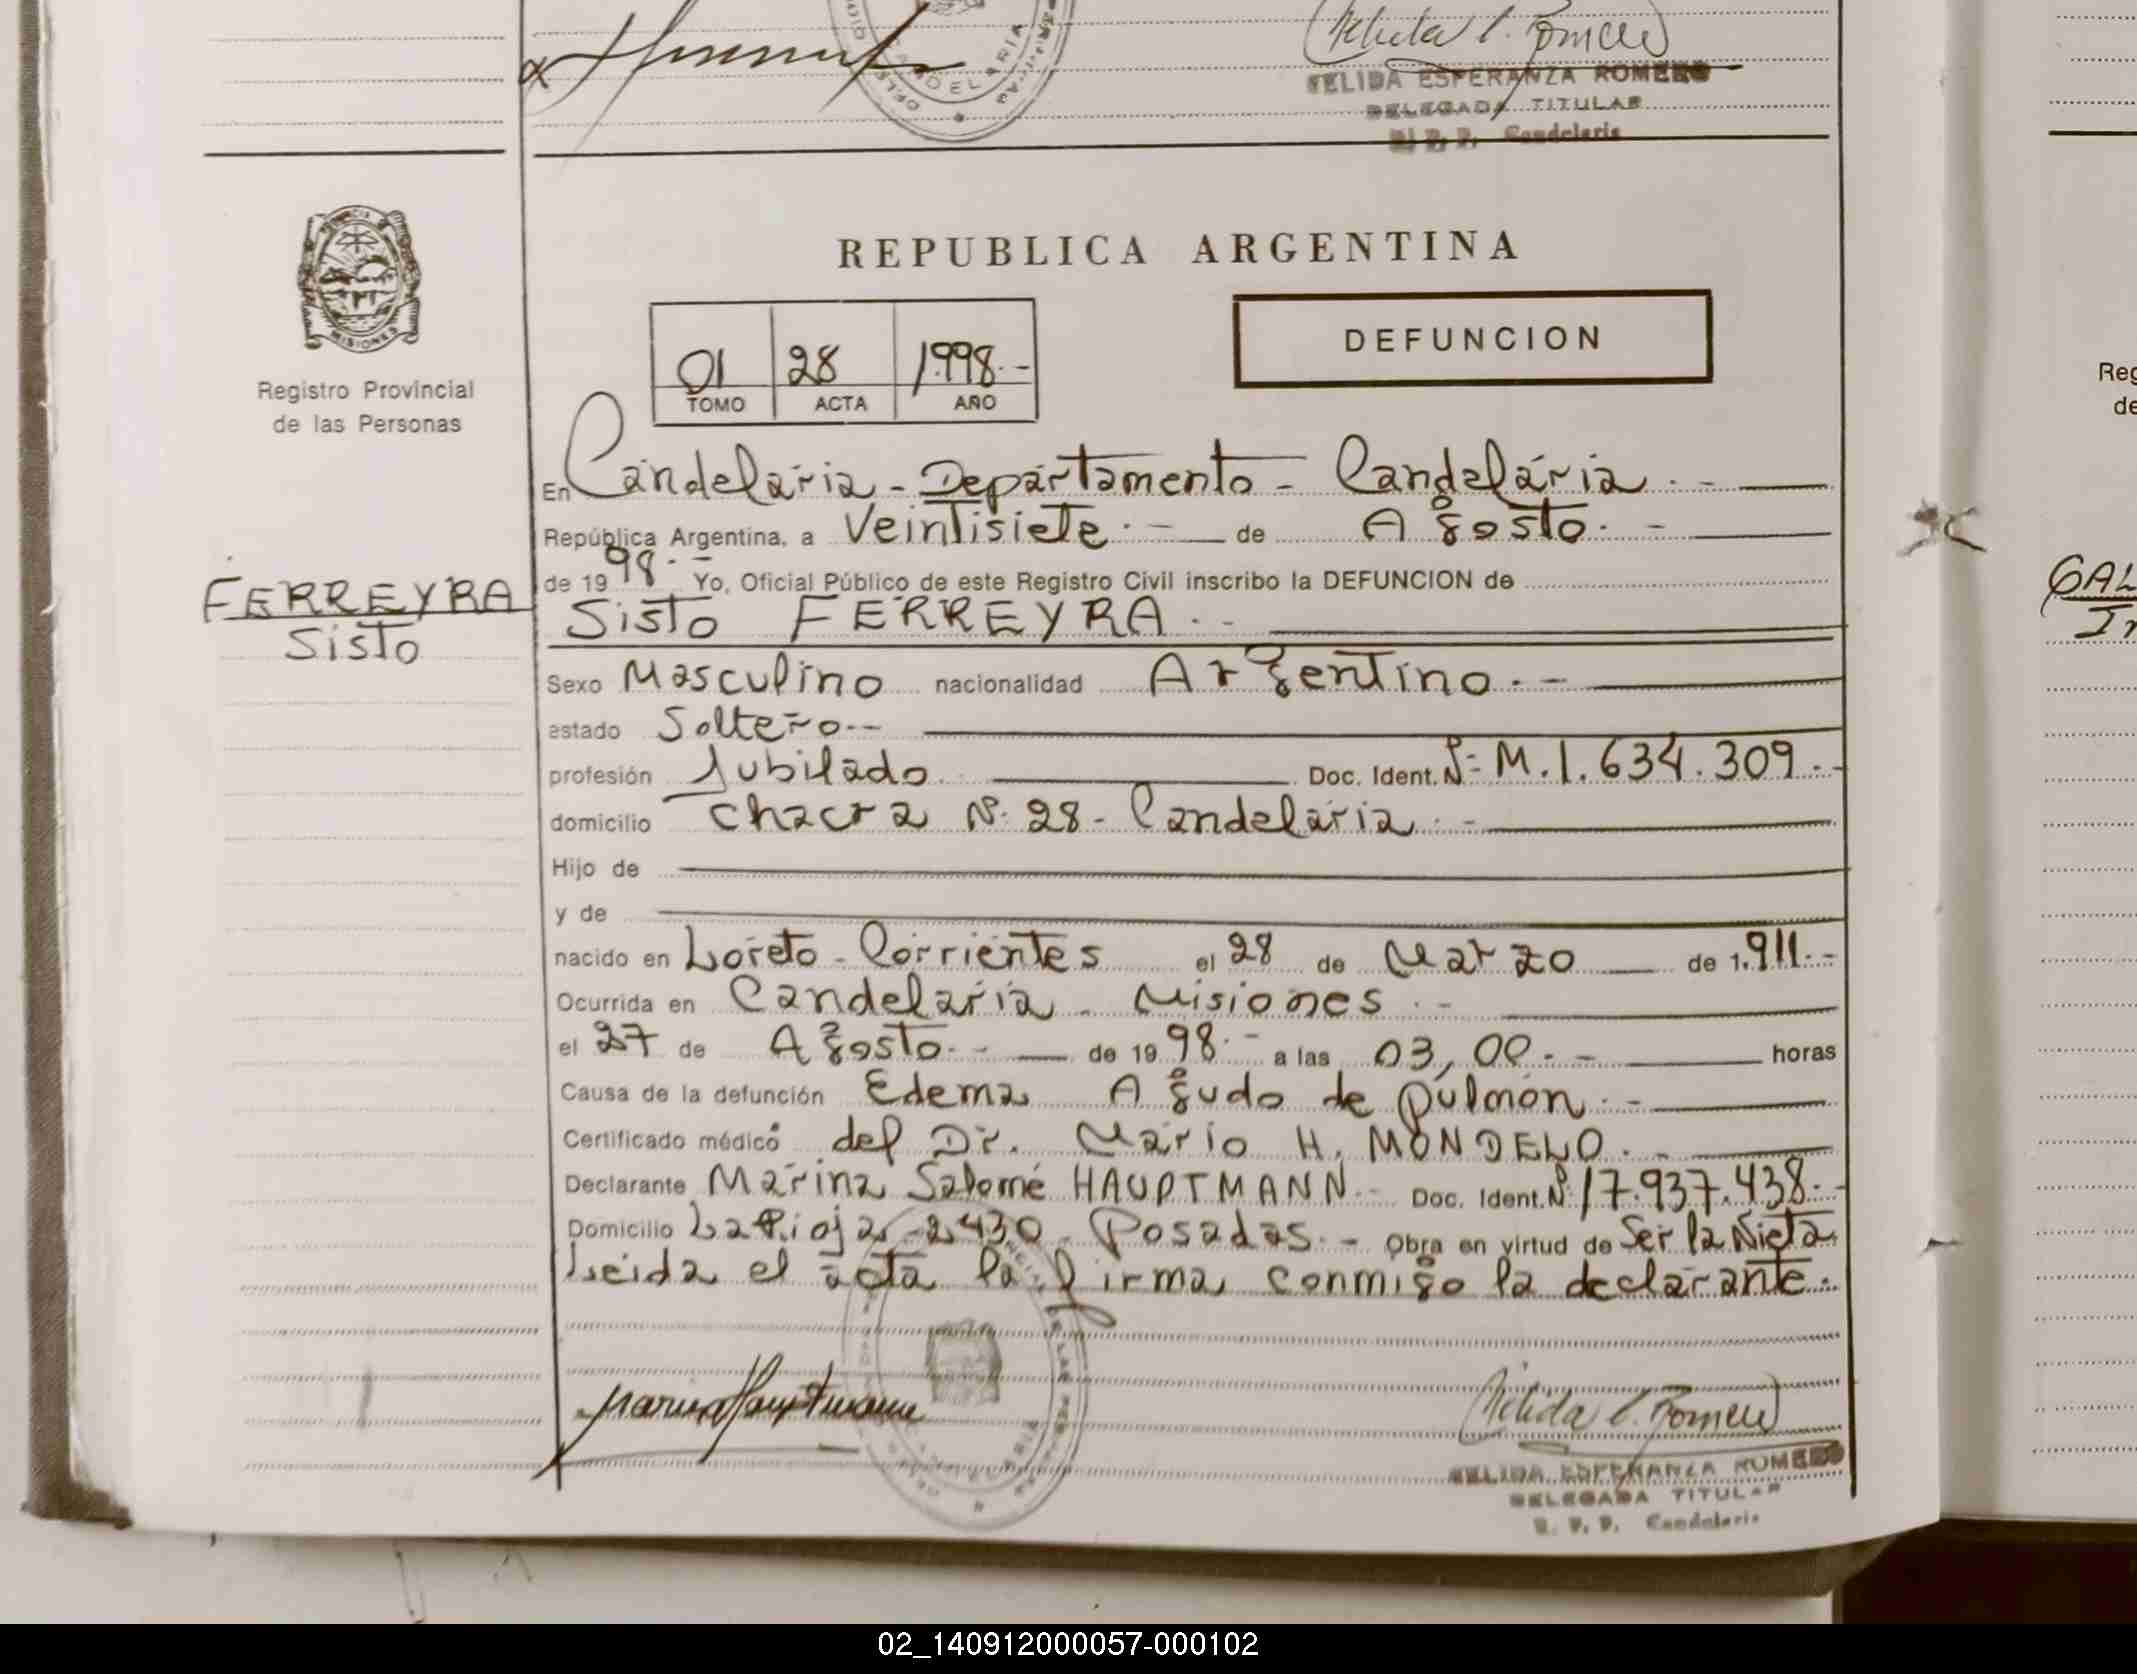 Nelida E. Romero
NELIDA ESPERANZA ROMERO
DELEGADA TITULAR
R. P. P. Candelaria
MISIONES
Registro Provincial
de las Personas
REPUBLICA ARGENTINA
01 28 1998.-
TOMO ACTA AÑO
DEFUNCION
En Candelaria - Departamento - Candelaria . -
República Argentina, a Veintisiete . - de Agosto . -
FERREYRA
Sisto
de 19 98.- Yo, Oficial Público de este Registro Civil inscribo la DEFUNCION de
Sisto FERREYRA . -
Sexo Masculino nacionalidad Argentino . -
estado Soltero . -
profesión Jubilado Doc. Ident. Nº M.1.634.309 . -
domicilio Chacra Nº 28 - Candelaria . -
Hijo de
y de
nacido en Loreto - Corrientes el 28 de Marzo de 1.911.-
Ocurrida en Candelaria - Misiones . -
el 27 de Agosto . - de 19 98.- a las 03,00 . - horas
Causa de la defunción Edema Agudo de pulmón . -
Certificado médico del Dr. Mario H. MONDELO . -
Declarante Marina Salomé HAUPTMANN . - Doc. Ident. Nº 17.937.438 . -
Domicilio La Rioja - 2430 - Posadas . - Obra en virtud de Ser la Nieta
Leida el acta la firma conmigo la declarante.
Marina Hauptmann
Nelida E. Romero
NELIDA ESPERANZA ROMERO
DELEGADA TITULAR
R. P. P. Candelaria
02_140912000057-000102